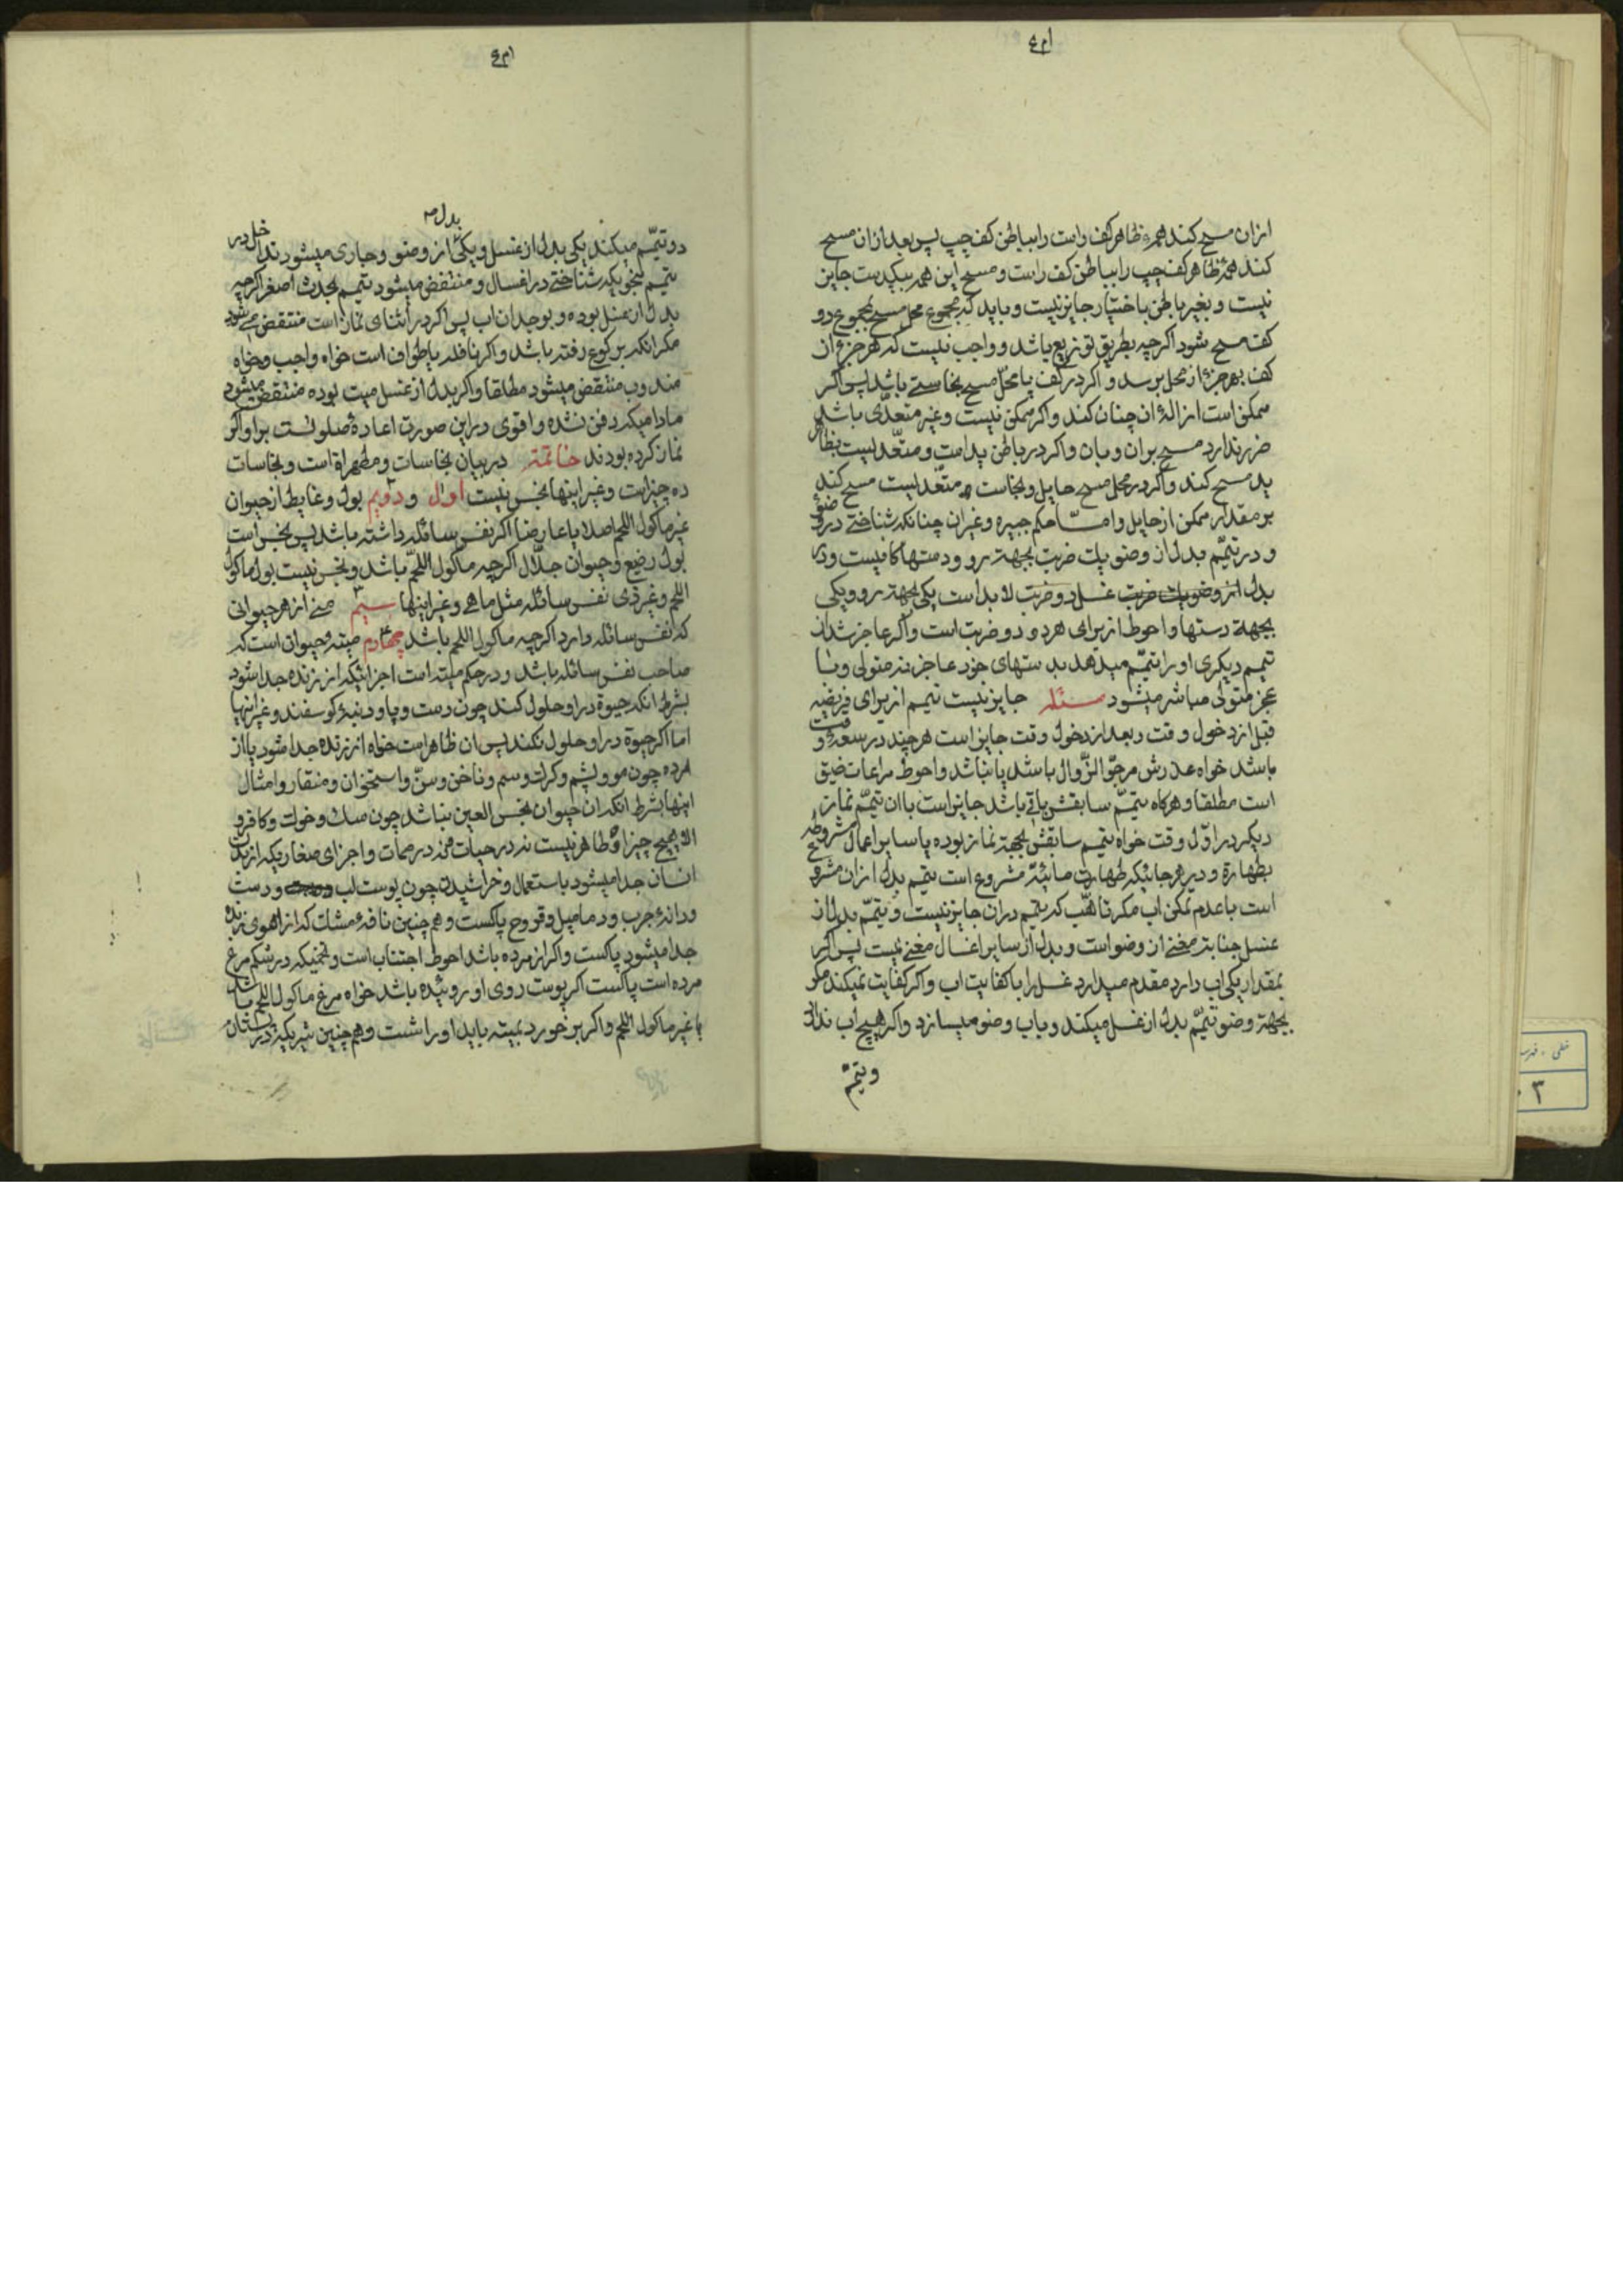 ازان مسح کند همهٔ ظاهر کف راست را بباطن کف چپ پس بعد ازان مسح
کند همهٔ ظاهر کف چپ را بباطن کف راست و مسح این همه بیکدست جایز
نیست و بغیر باطن باختیار جایز نیست و باید که مجموع محل مسح بمجموع دو
کف مسح شود اگرچه بطریق توزیع باشد و واجب نیست که هر جزء از
کف بهر جزء از محل برسد و اگر در کف یا محل مسح نجاستی باشد پس اگر
ممکن است ازالهٔ ان چنان کند و اگر ممکن نیست و غیر متعدّی باشد
ضرر ندارد مسح بران و بان و اگر در باطن ید است و متعدّیست بظاهر
ید مسح کند و اگر در محل مسح حایل و نجاست متعدّیست مسح کند
بر مقدار ممکن از حایل و امّا حکم جبیره و غیر ان چنانکه شناختی در وضو
و در تیمّم بدل از وضو یک ضربت بجهة رو و دستها کافیست و در
بدل از غسل دو ضربت لابد است یکی بجهة رو و یکی
بجهة دستها و احوط از برای هر دو دو ضربت است و اگر عاجز شد از
تیمم دیگری او را تیمّم میدهد بدستهای خود عاجز نه متولی و با
عجز متولی مباشر میشود مسئله جایز نیست تیمم از برای فریضه
قبل از دخول وقت و بعد از دخول وقت جایز است هرچند در سعهٔ وقت
باشد خواه عذرش مرجوّ الزّوال باشد یا نباشد و احوط مراعات ضیق
است مطلقا و هرگاه تیمّم سابقش باقی باشد جایز است با ان تیمّم نماز
دیگر در اوّل وقت خواه تیمم سابقش بجهة نماز بوده یا سایر اعمال مشروطه
بطهارة و در هر جائیکه طهارت مائیّه مشروع است تیمم بدل ازان مشروع
است با عدم تمکن اب مگر تاهّب که تیمم دران جایز نیست و تیمّم بدل از
غسل جنابة مغنی از وضو است و بدل از سایر اغسال مغنی نیست پس اگر
بمقدار یکی اب دارد مقدم میدارد غسل را با کفایت اب و اگر کفایت نمیکند مگر
بجهة وضو تیمّم بدل از غسل میکند و باب وضو میسازد و اگر هیچ اب ندارد
و تیمم
بدل
دو تیمّم میکند یکی بدل از غسل و یکی از وضو و جاری میشود تداخل در
تیمم بنحویکه شناختی در اغسال و منتقض میشود تیمم بحدث اصغر اگرچه
بدل از غسل بوده و بوجدان اب پس اگر در اثنای نماز است منتقض میشود
مگر انکه برکوع رفته باشد و اگر نافله یا طواف است خواه واجب و خواه
مندوب منتقض میشود مطلقا و اگر بدل از غسل میت بوده منتقض میشود
مادامیکه دفن نشده و اقوی در این صورت اعادهٔ صلوتست بر او اگر
نماز کرده بودند خاتمة در بیان نجاسات و مطهراة است و نجاسات
ده چیز است و غیر اینها نجس نیست اول و دویم بول و غایط از حیوان
غیر ماکول اللحم اصلا یا عارضا اگر نفس سائله داشته باشد پس نجس است
بول رضیع و حیوان جلّال اگرچه ماکول اللحم باشد و نجس نیست بول ماکول
اللحم و غیر ذی نفس سائله مثل ماهی و غیر اینها سیم منی از هر حیوانی
که نفس سائله دارد اگرچه ماکول اللحم باشد چهارم میته و حیوان است که
صاحب نفس سائله باشد و در حکم میته است اجزائیکه از زنده جدا شود
بشرط انکه حیوة در او حلول کند چون دست و پا و دنبهٔ گوسفند و غیر اینها
اما اگر حیوة در او حلول نکند پس ان ظاهر است خواه از زنده جدا شود یا از
مرده چون مو و پشم و کرک و سم و ناخن و سنّ و استخوان و منقار و امثال
اینها بشرط انکه ان حیوان نجس العین نباشد چون سک و خوک و کافر و
الا هیچ چیز او طاهر نیست نه در حیات و نه در ممات و اجزای صغاریکه از بدن
انسان جدا میشود باستعمال و خراشیدن چون پوست لب و دست
و دانهٔ جرب و دمامیل و قروح پاکست و همچنین نافهٔ مشک که از اهوی زنده
جدا میشود پاکست و اگر از مرده باشد احوط اجتناب است و تخمیکه در شکم مرغ
مرده است پاکست اگر پوست روی او روئیده باشد خواه مرغ ماکول اللحم باشد
یا غیر ماکول اللحم و اگر برخورد بمیته باید او را شست و همچنین شیریکه در پستان